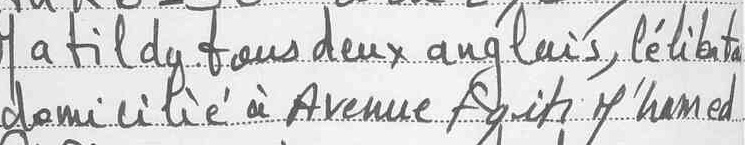 Matildy tous deux anglais, célibata
domicilié à Avenue Fqih M'hamed